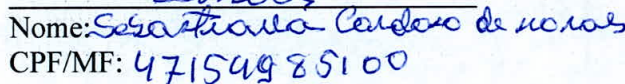 Nome: Sebastiana Cardoso de morais
CPF/MF: 47154985100